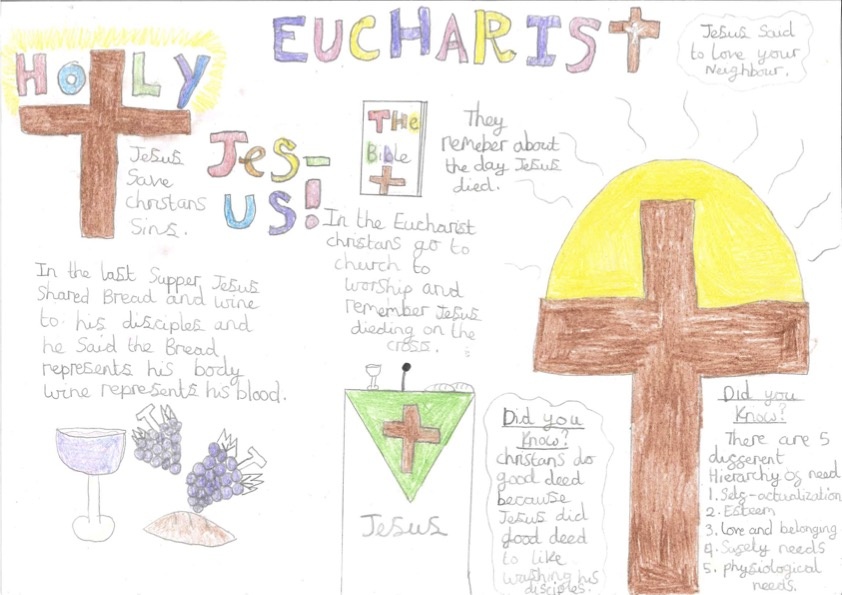 HOLY
EUCHARIST
Jesus Said
to love your
Neighbour.
Jesus
Save
christans
Sins.
Jes-
us!
The
Bible
They
remeber about
the day Jesus
died.
In the last Supper, Jesus
Shared Bread and wine
to his disciples and
he Said the Bread
represents his body
wine represents his blood.
In the Eucharist
christans go to
church to
worship and
remember Jesus
dieding on the
cross.
Jesus
Did you
Know?
christans do
good deed
because
Jesus did
good deed
to like
washing his
disciples.
Did you
Know?
There are 5
disserent
Hierarchy os need
1. Sels-actualization
2. Esteem
3. love and belonging
4. Susely needs
5. physiological
needs.